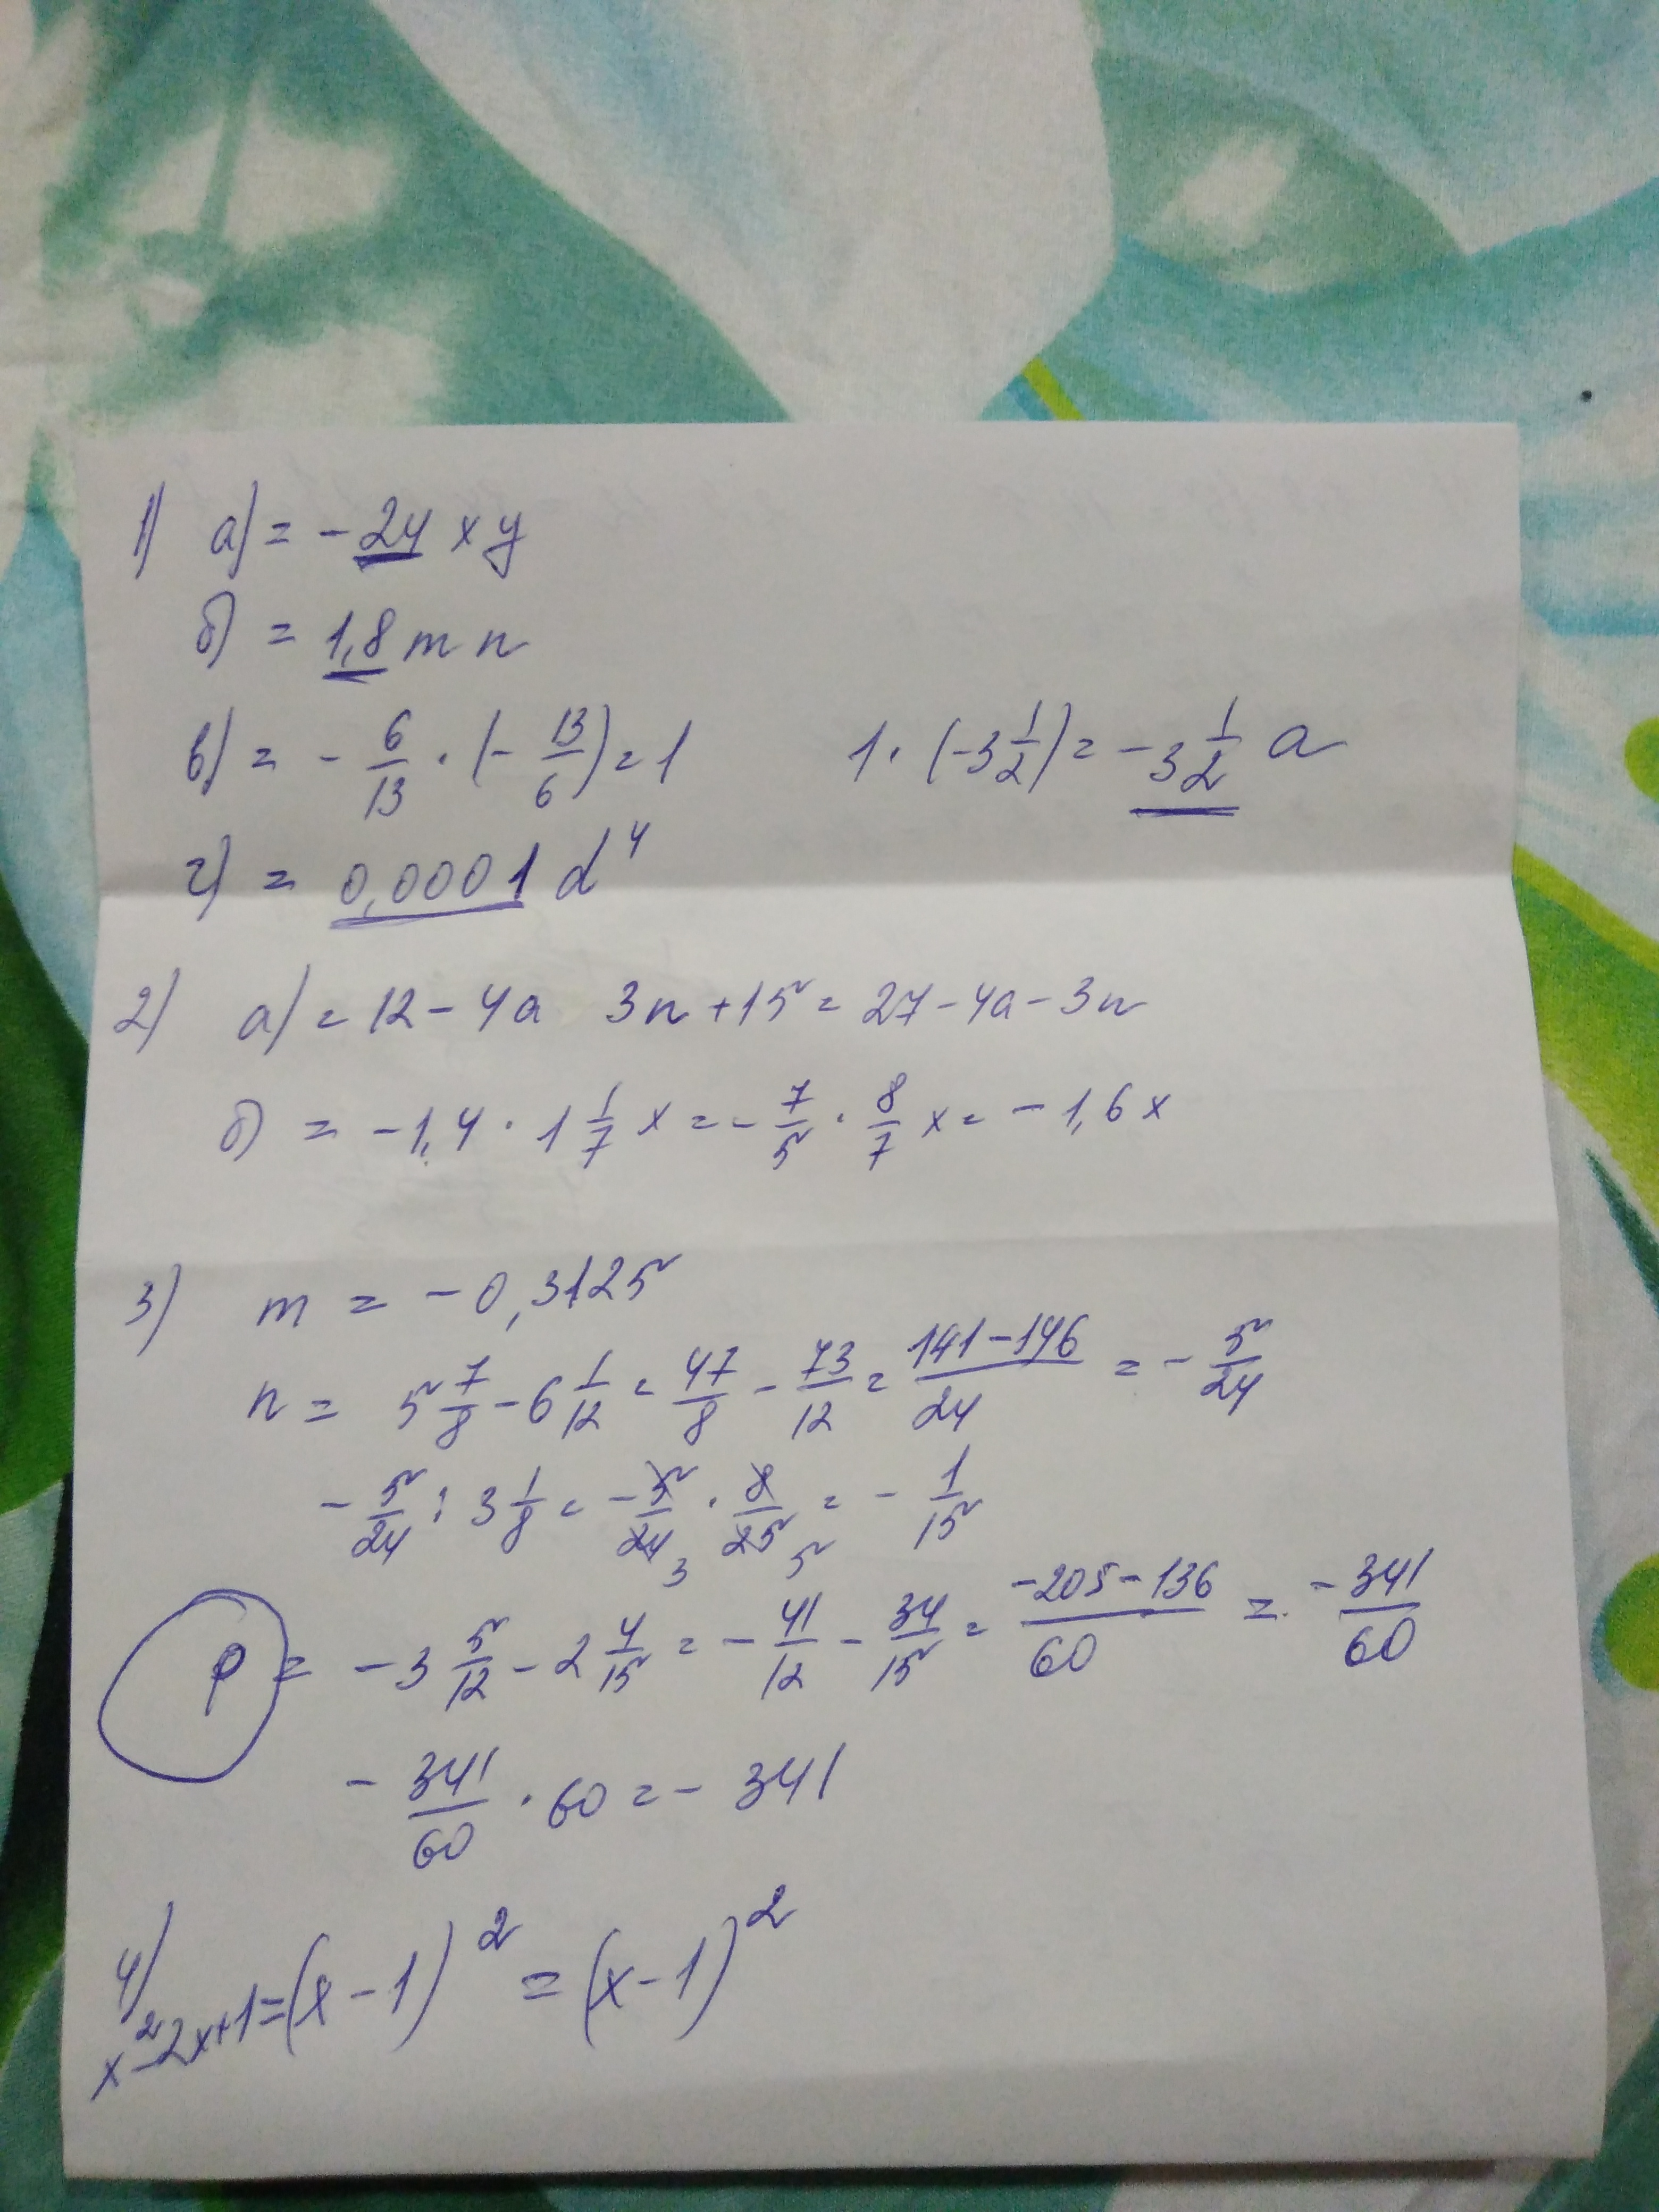 1) а) = - 24 x y
б) = 1,8 m n
в) = - 6/13 · (- 13/6) = 1 1 · (-3 1/2) = -3 1/2 a
г) = 0,0001 d⁴
2) а) = 12 - 4a 3n + 15 = 27 - 4a - 3n
б) = -1,4 · 1 1/7 x = - 7/5 · 8/7 x = - 1,6 x
3) m = - 0,3125
n = 5 7/8 - 6 1/12 = 47/8 - 73/12 = (141 - 146)/24 = - 5/24
- 5/24 : 3 1/8 = - 5/24 3 · 8/25 5 = - 1/15
p = - 3 5/12 - 2 4/15 = - 41/12 - 34/15 = (-205 - 136)/60 = - 341/60
- 341/60 · 60 = - 341
4)
x² - 2x + 1 = (x - 1)² = (x - 1)²